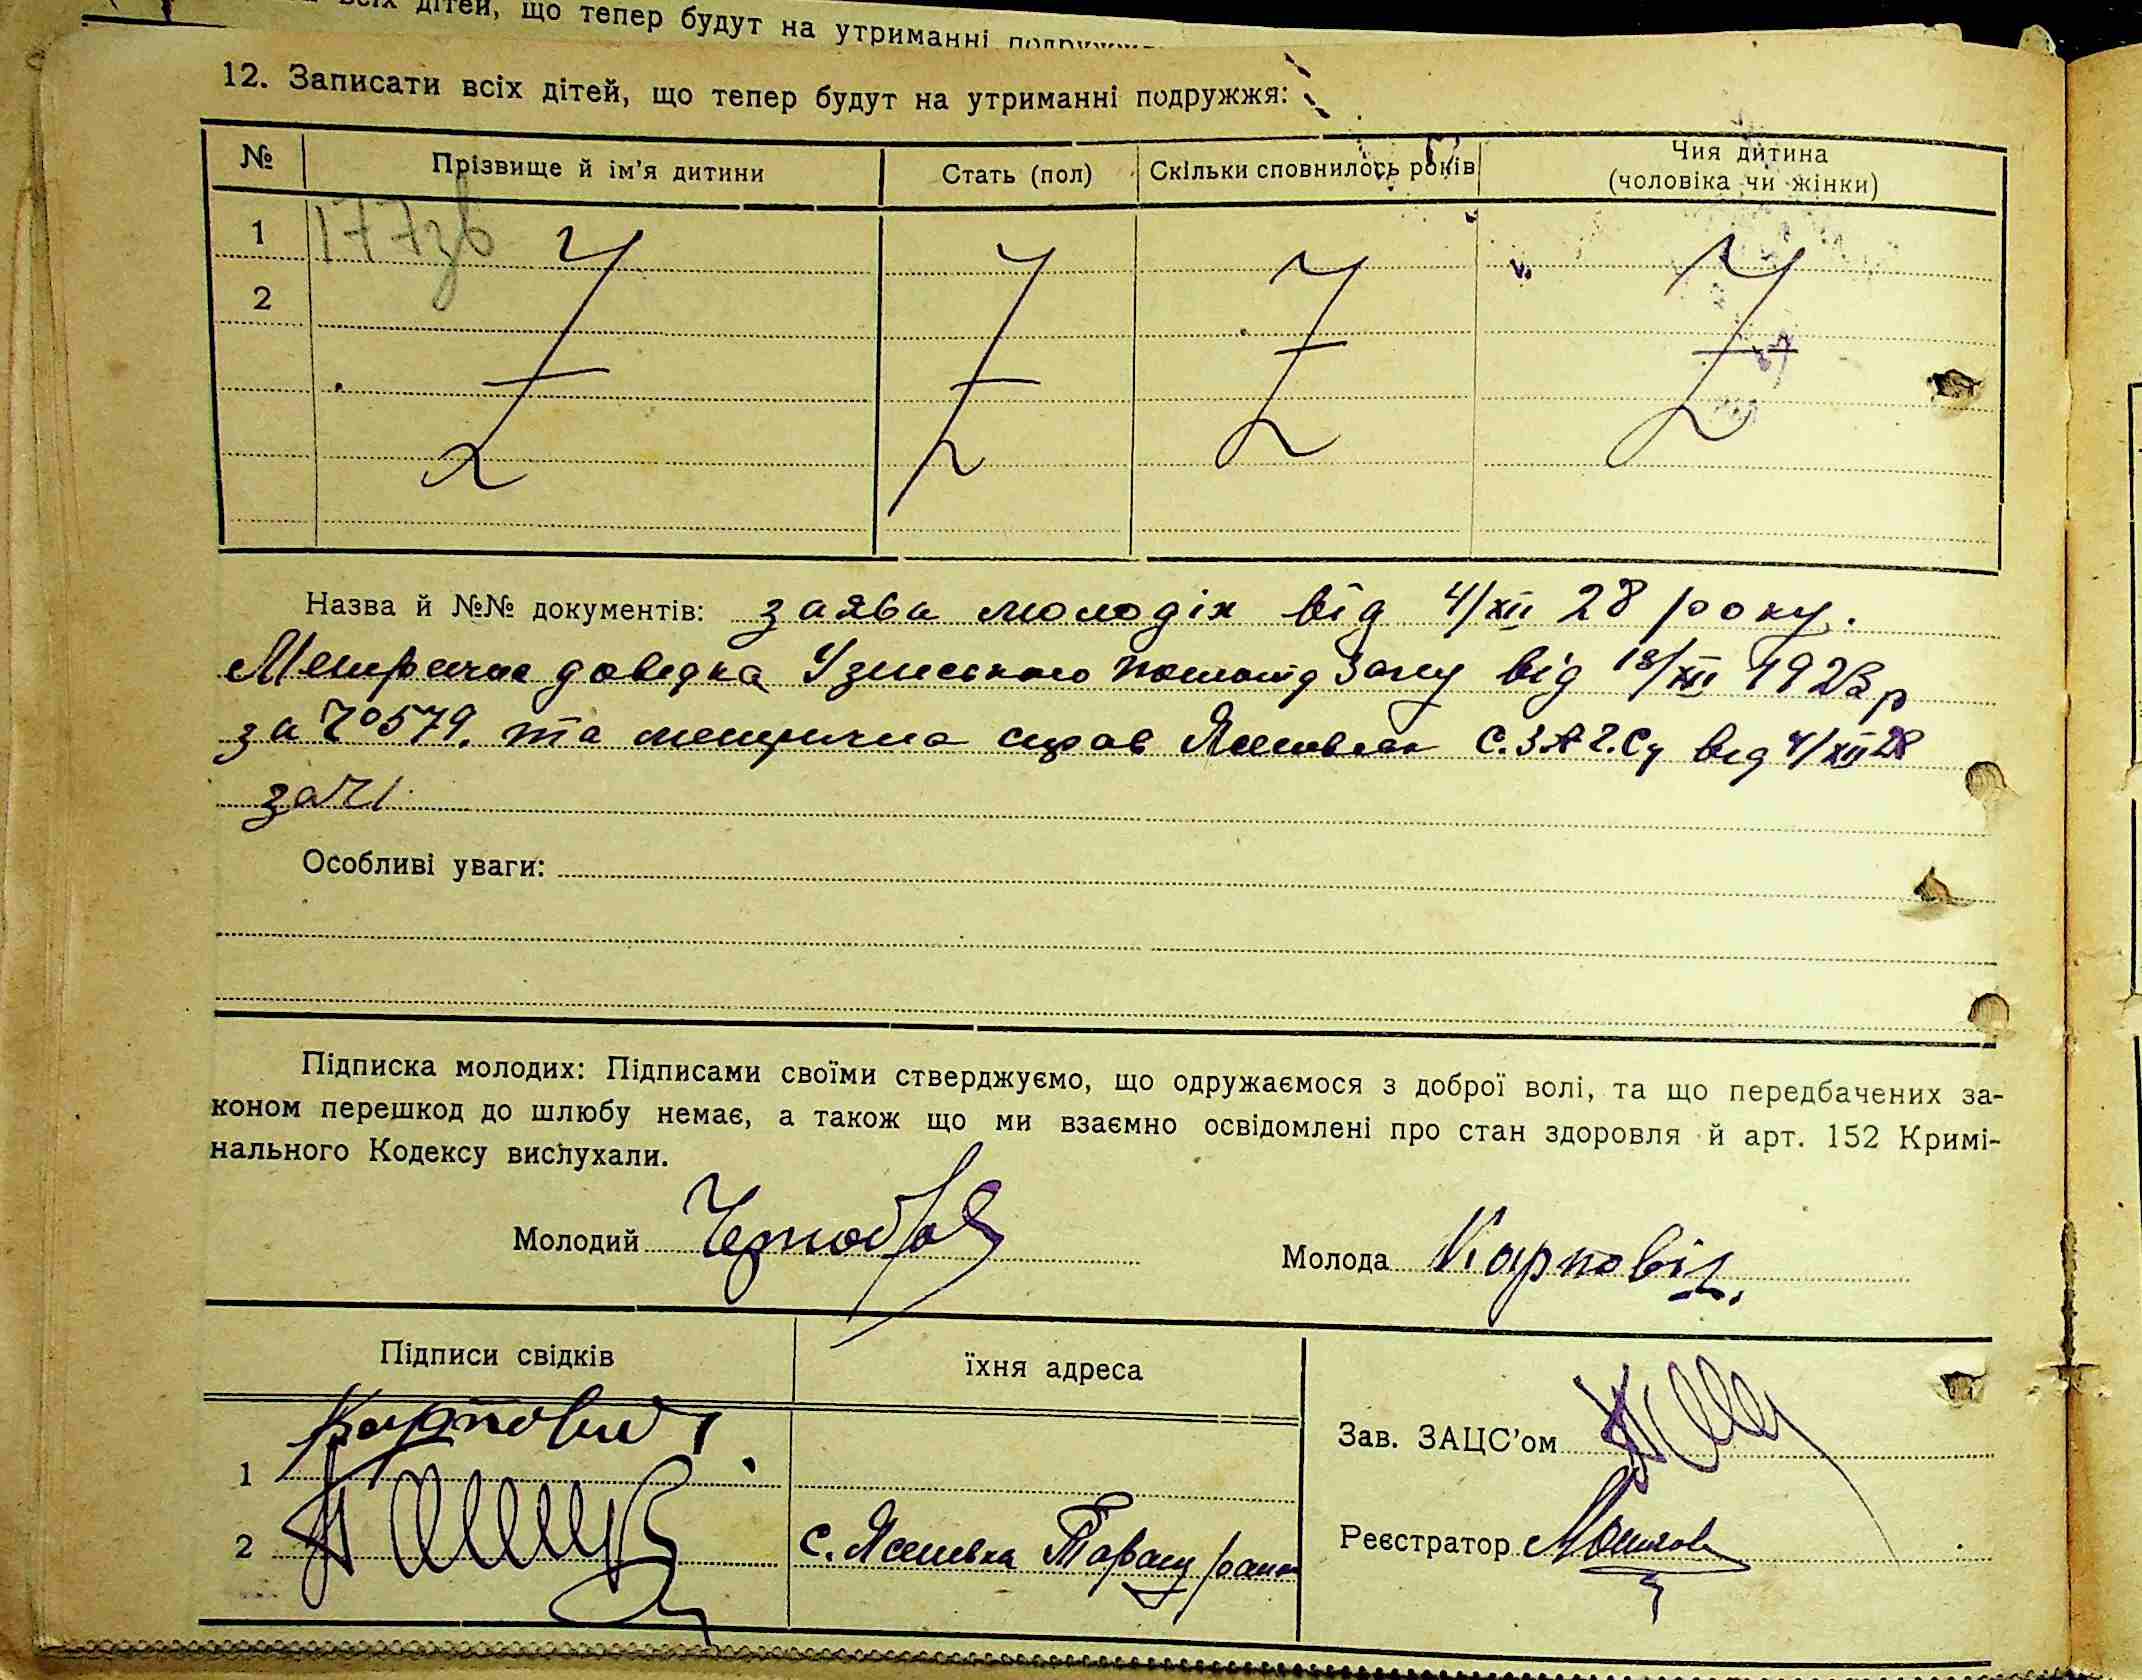 всіх дітей, що тепер будут на утриманні подружжя
12. Записати всіх дітей, що тепер будут на утриманні подружжя:
№ Прізвище й ім'я дитини Стать (пол) Скільки сповнилось років Чия дитина
(чоловіка чи жінки)
1 177зв
2
Назва й №№ документів: заява молодіх від 4/XII 28 року.
Метрична довідка від 18/XII 1923 р
за № 579. та метрична справ від 4/XII 28
за № 1
Особливі уваги:
Підписка молодих: Підписами своїми стверджуємо, що одружаємося з доброї волі, та що передбачених за-
коном перешкод до шлюбу немає, а також що ми взаємно освідомлені про стан здоровля й арт. 152 Кримі-
нального Кодексу вислухали.
Молодий Молода Карповіч.
Підписи свідків їхня адреса
Зав. ЗАЦС'ом
1 Карпович
2 с. Ясенівка
Реєстратор